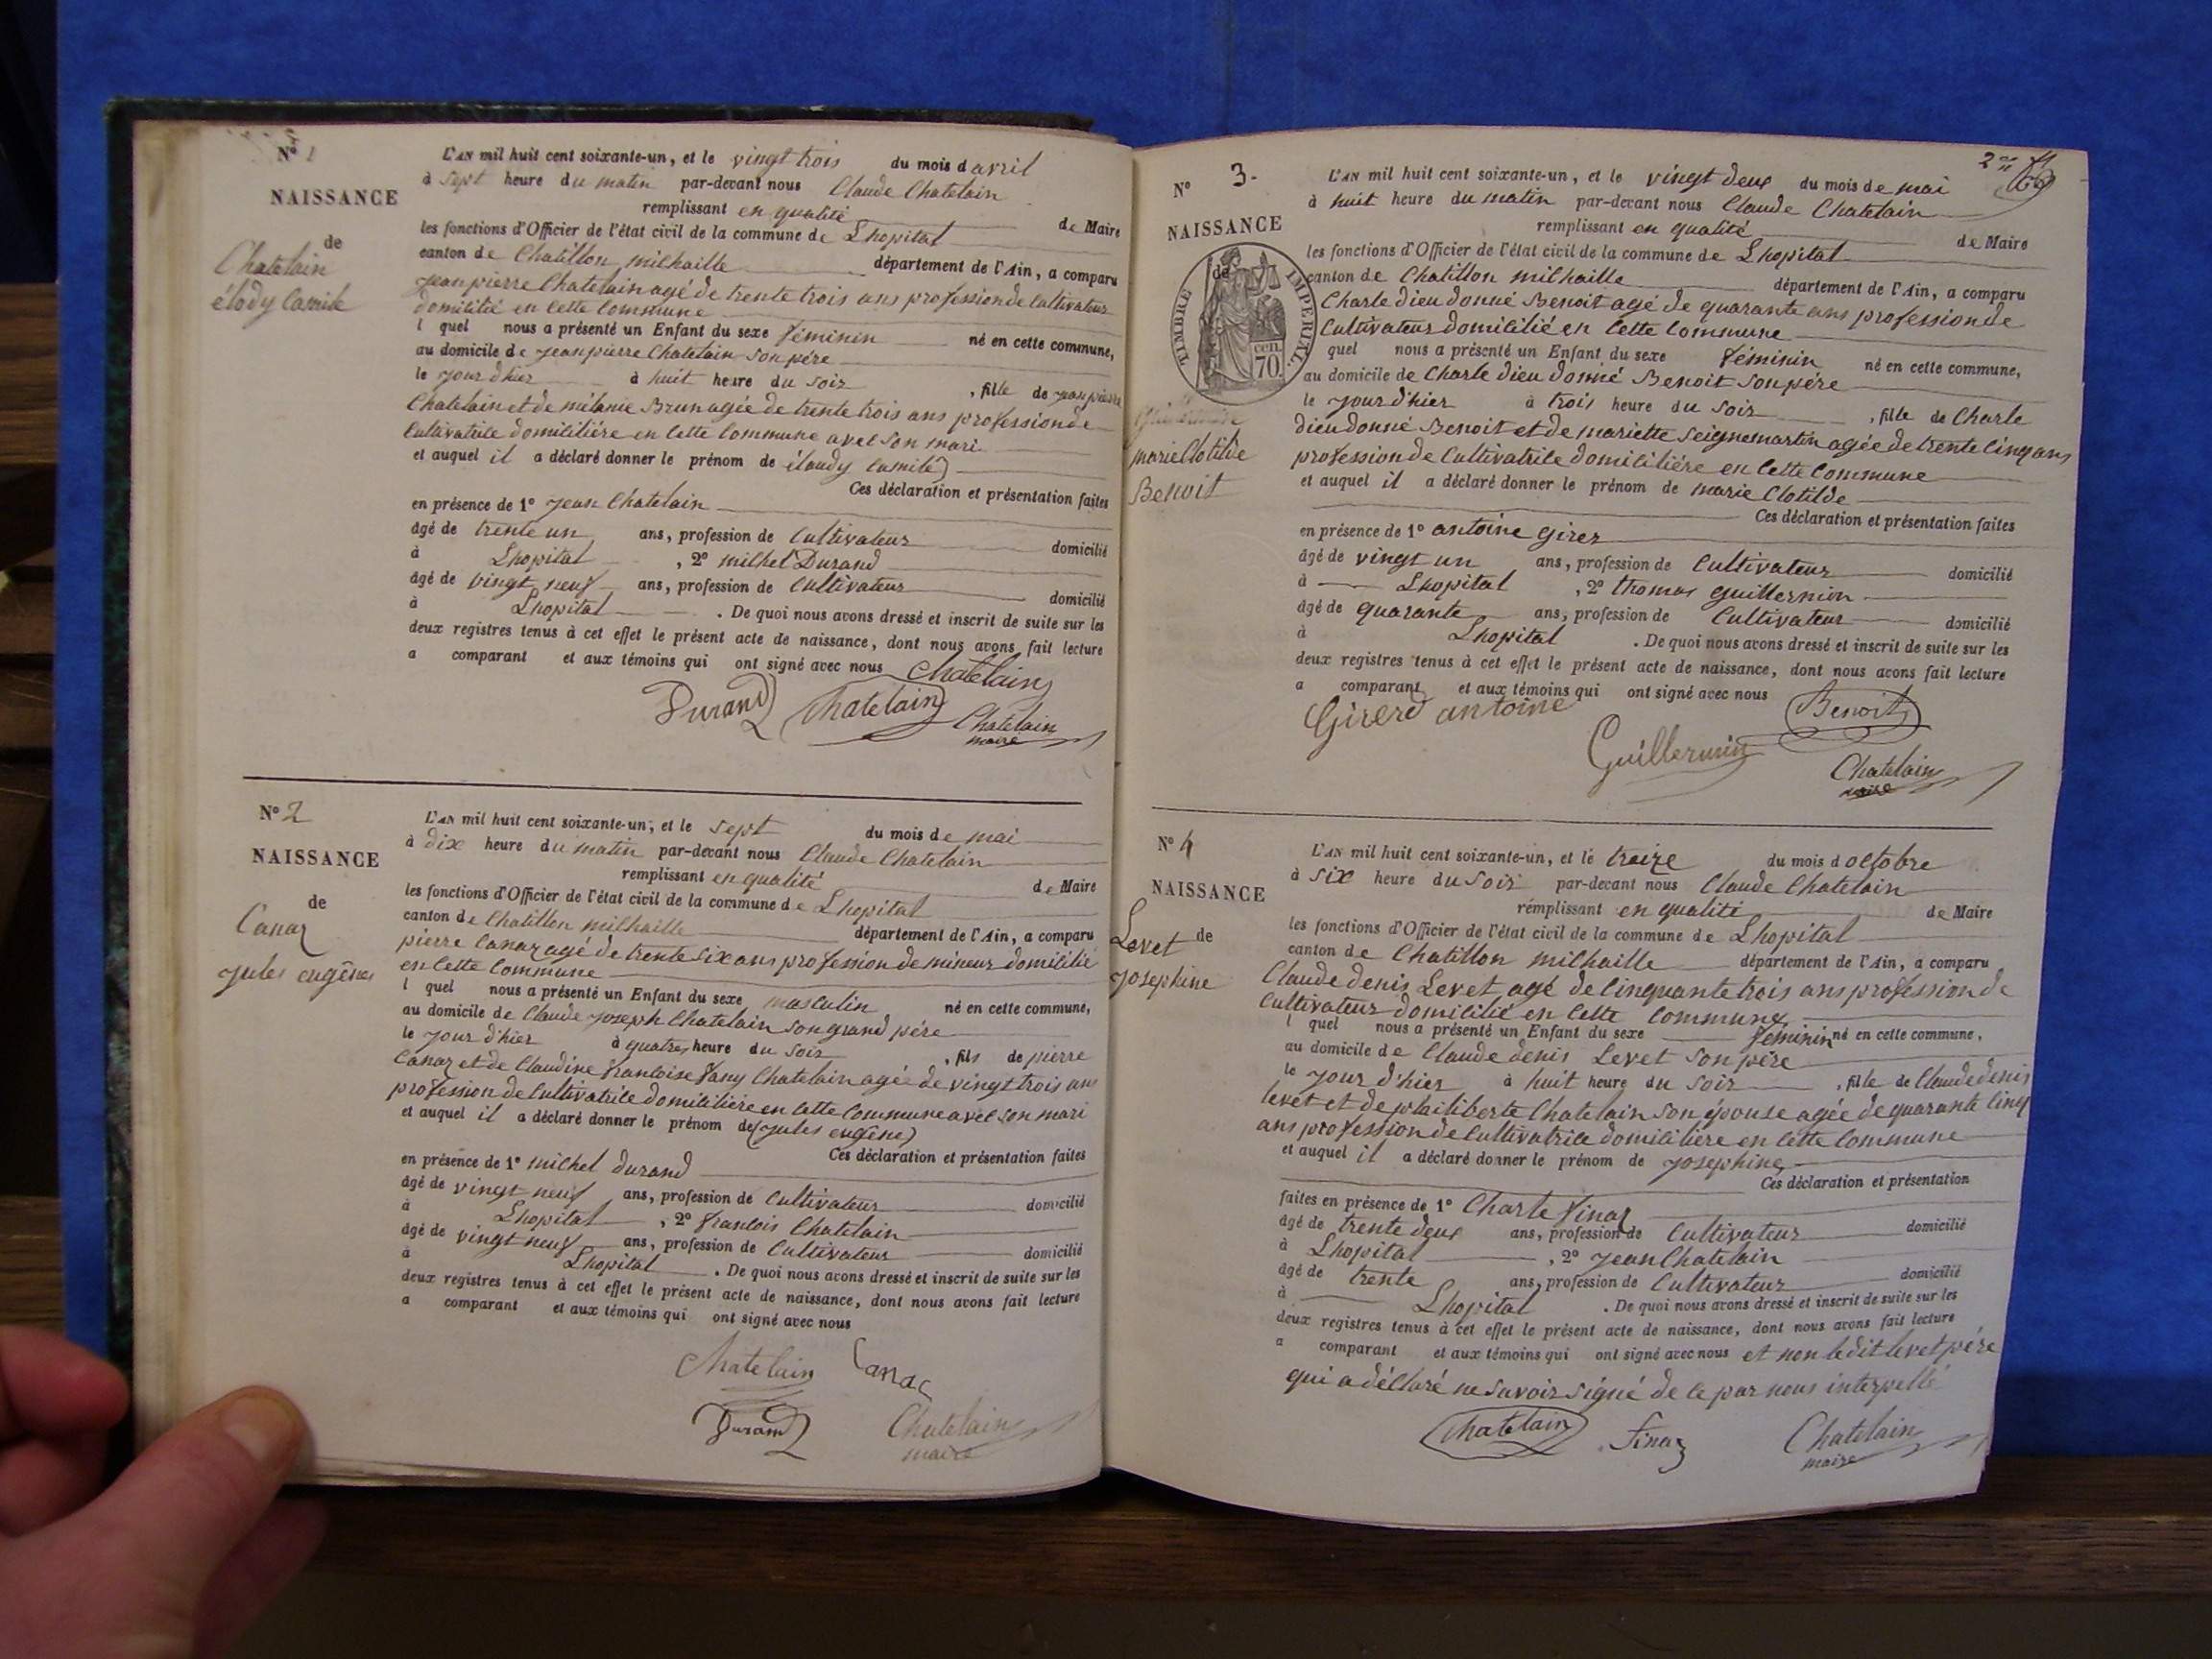 N° 1
NAISSANCE
de
Chatelain
élody Camile
L'AN mil huit cent soixante-un, et le vingt trois du mois d avril
à sept heure du matin par-devant nous Claude Chatelain
remplissant en qualité de Maire
les fonctions d'Officier de l'état civil de la commune de Lhopital
canton de Chatillon milhaille département de l'Ain, a comparu
jean pierre Chatelain agé de trente trois ans profession de Cultivateur
domicilié en cette Commune
l quel nous a présenté un Enfant du sexe féminin né en cette commune,
au domicile de jean pierre Chatelain son père
le jour d'hier à huit heure du soir , fille de jean pierre
Chatelain et de mélanie Brun agée de trente trois ans profession de
Cultivatrice domicilière en cette Commune avec son mari
et auquel il a déclaré donner le prénom de élaudy Camile)
Ces déclaration et présentation faites
en présence de 1° jean Chatelain
âgé de trente un ans, profession de Cultivateur domicilié
à Lhopital , 2° michel Durand
âgé de vingt neuf ans, profession de Cultivateur domicilié
à Lhopital . De quoi nous avons dressé et inscrit de suite sur les
deux registres tenus à cet effet le présent acte de naissance, dont nous avons fait lecture
a comparant et aux témoins qui ont signé avec nous Chatelain
Durand Chatelain Chatelain
maire
N° 2
NAISSANCE
de
Canaz
jules eugênes
L'AN mil huit cent soixante-un, et le sept du mois de mai
à dix heure du matin par-devant nous Claude Chatelain
remplissant en qualité de Maire
les fonctions d'Officier de l'état civil de la commune de Lhopital
canton de Chatillon milhaille département de l'Ain, a comparu
pierre Canaz agé de trente six ans profession de mineur domicilié
en cette Commune
l quel nous a présenté un Enfant du sexe masculin né en cette commune,
au domicile de Claude joseph Chatelain son grand père
le jour d'hier à quatres heure du soir , fils de pierre
Canaz et de Claudine francoise fany Chatelain agée de vingt trois ans
profession de Cultivatrice domicilière en cette Commune avec son mari
et auquel il a déclaré donner le prénom de (jules eugêne)
Ces déclaration et présentation faites
en présence de 1° michel durand
âgé de vingt neuf ans, profession de Cultivateur domicilié
à Lhopital , 2° francois Chatelain
âgé de vingt neuf ans, profession de Cultivateur domicilié
à Lhopital . De quoi nous avons dressé et inscrit de suite sur les
deux registres tenus à cet effet le présent acte de naissance, dont nous avons fait lecture
a comparant et aux témoins qui ont signé avec nous
Chatelain Canaz
Durand Chatelain
maire
2me
N° 3.
NAISSANCE
de
TIMBRE IMPERIAL
cen. 70.
marie Clotilde
Benoit
L'AN mil huit cent soixante-un, et le vingt deux du mois de mai
à huit heure du matin par-devant nous Claude Chatelain
remplissant en qualité de Maire
les fonctions d'Officier de l'état civil de la commune de Lhopital
canton de Chatillon milhaille département de l'Ain, a comparu
Charle dieu donné Benoit agé de quarante ans profession de
Cultivateur domicilié en cette Commune
quel nous a présenté un Enfant du sexe féminin né en cette commune,
au domicile de Charle dieu donné Benoit son père
le jour d'hier à trois heure du soir , fille de Charle
dieu donné Benoit et de mariette seignemartin agée de trente cinq ans
profession de Cultivatrice domicilière en cette Commune
et auquel il a déclaré donner le prénom de marie Clotilde
Ces déclaration et présentation faites
en présence de 1° antoine girer
âgé de vingt un ans, profession de Cultivateur domicilié
à Lhopital , 2° thomas guillermin
âgé de quarante ans, profession de Cultivateur domicilié
à Lhopital . De quoi nous avons dressé et inscrit de suite sur les
deux registres tenus à cet effet le présent acte de naissance, dont nous avons fait lecture
a comparant et aux témoins qui ont signé avec nous
Girerd antoine Benoit
Guillermin Chatelain
maire
N° 4
NAISSANCE
de
Levet
josephine
L'AN mil huit cent soixante-un, et le treize du mois d octobre
à six heure du soir par-devant nous Claude Chatelain
remplissant en qualité de Maire
les fonctions d'Officier de l'état civil de la commune de Lhopital
canton de Chatillon milhaille département de l'Ain, a comparu
Claude denis Levet agé de cinquante trois ans profession de
Cultivateur domicilié en cette Commune
l quel nous a présenté un Enfant du sexe féminin né en cette commune,
au domicile de Claude denis Levet son père
le jour d'hier à huit heure du soir , fille de Claude denis
levet et de philiberte Chatelain son épouse agée de quarante cinq
ans profession de Cultivatrice domicilière en cette Commune
et auquel il a déclaré donner le prénom de josephine
Ces déclaration et présentation
faites en présence de 1° Charle finaz
âgé de trente deux ans, profession de Cultivateur domicilié
à Lhopital , 2° jean Chatelain
âgé de trente ans, profession de Cultivateur domicilié
à Lhopital . De quoi nous avons dressé et inscrit de suite sur les
deux registres tenus à cet effet le présent acte de naissance, dont nous avons fait lecture
a comparant et aux témoins qui ont signé avec nous et non ledit levet père
qui a déclaré ne savoir signé de ce par nous interpellé
Chatelain finaz Chatelain
maire